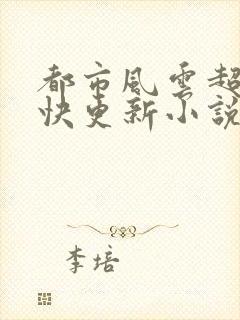 都市風雲超
快更新小說
李培